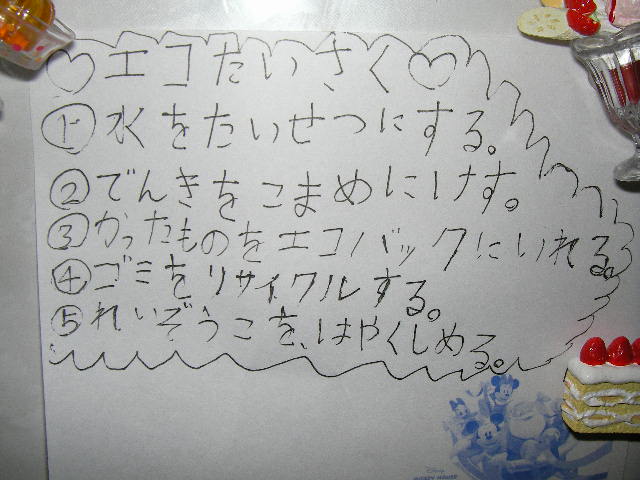 ♡エコたいさく♡
① 水をたいせつにする。
② でんきをこまめにけす。
③ かったものをエコバックにいれる。
④ ゴミをリサイクルする。
⑤ れいぞうこを、はやくしめる。
Disney
MICKEY MOUSE